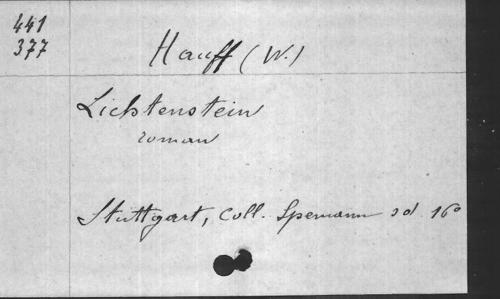 441
377
Hauff (W.)
Lichtenstein
roman
Stuttgart, Coll. Spemann sd 16°